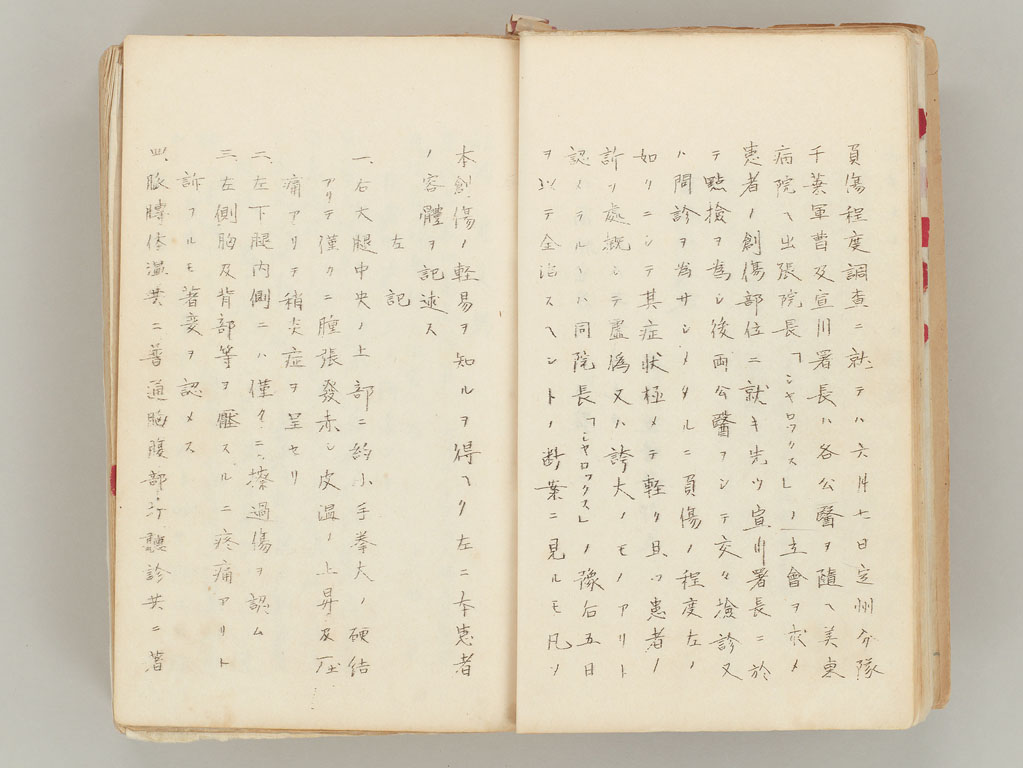 負傷程度調査ニ就テハ六月七日定州分隊
千葉軍曹及宣川署長ハ各公醫ヲ隨ヘ美東
病院ヘ出張院長「シヤロツクス」ノ立會ヲ求メ
患者ノ創傷部位ニ就キ先ツ宣川署長ニ於
テ點撿ヲ為シ後両公醫ヲシテ交々撿診又
ハ問診ヲ為サシメタルニ負傷ノ程度左ノ
如クニシテ其症状極メテ軽ク且ツ患者ノ
訴ツ處概シテ虚偽又ハ誇大ノモノアリト
認メラル、ハ同院長「シヤロツクス」ノ豫后五日
ヲ以テ全治スヘシトノ断案ニ見ルモ凡ソ
本創傷ノ軽易ヲ知ルヲ得ヘク左ニ本患者
ノ容體ヲ記述ス
左記
一、右大腿中央ノ上部ニ約小手拳大ノ硬結
アリテ僅カニ腫張發赤シ皮温ノ上昇及圧
痛アリテ稍炎症ヲ呈セリ
二、左下腿内側ニハ僅カニ擦過傷ヲ認ム
三、左側胸及背部等ヲ壓スルニ疼痛アリト
訴フルモ著変ヲ認メス
四、脈膊体温共ニ普通胸腹部打聽診共ニ著